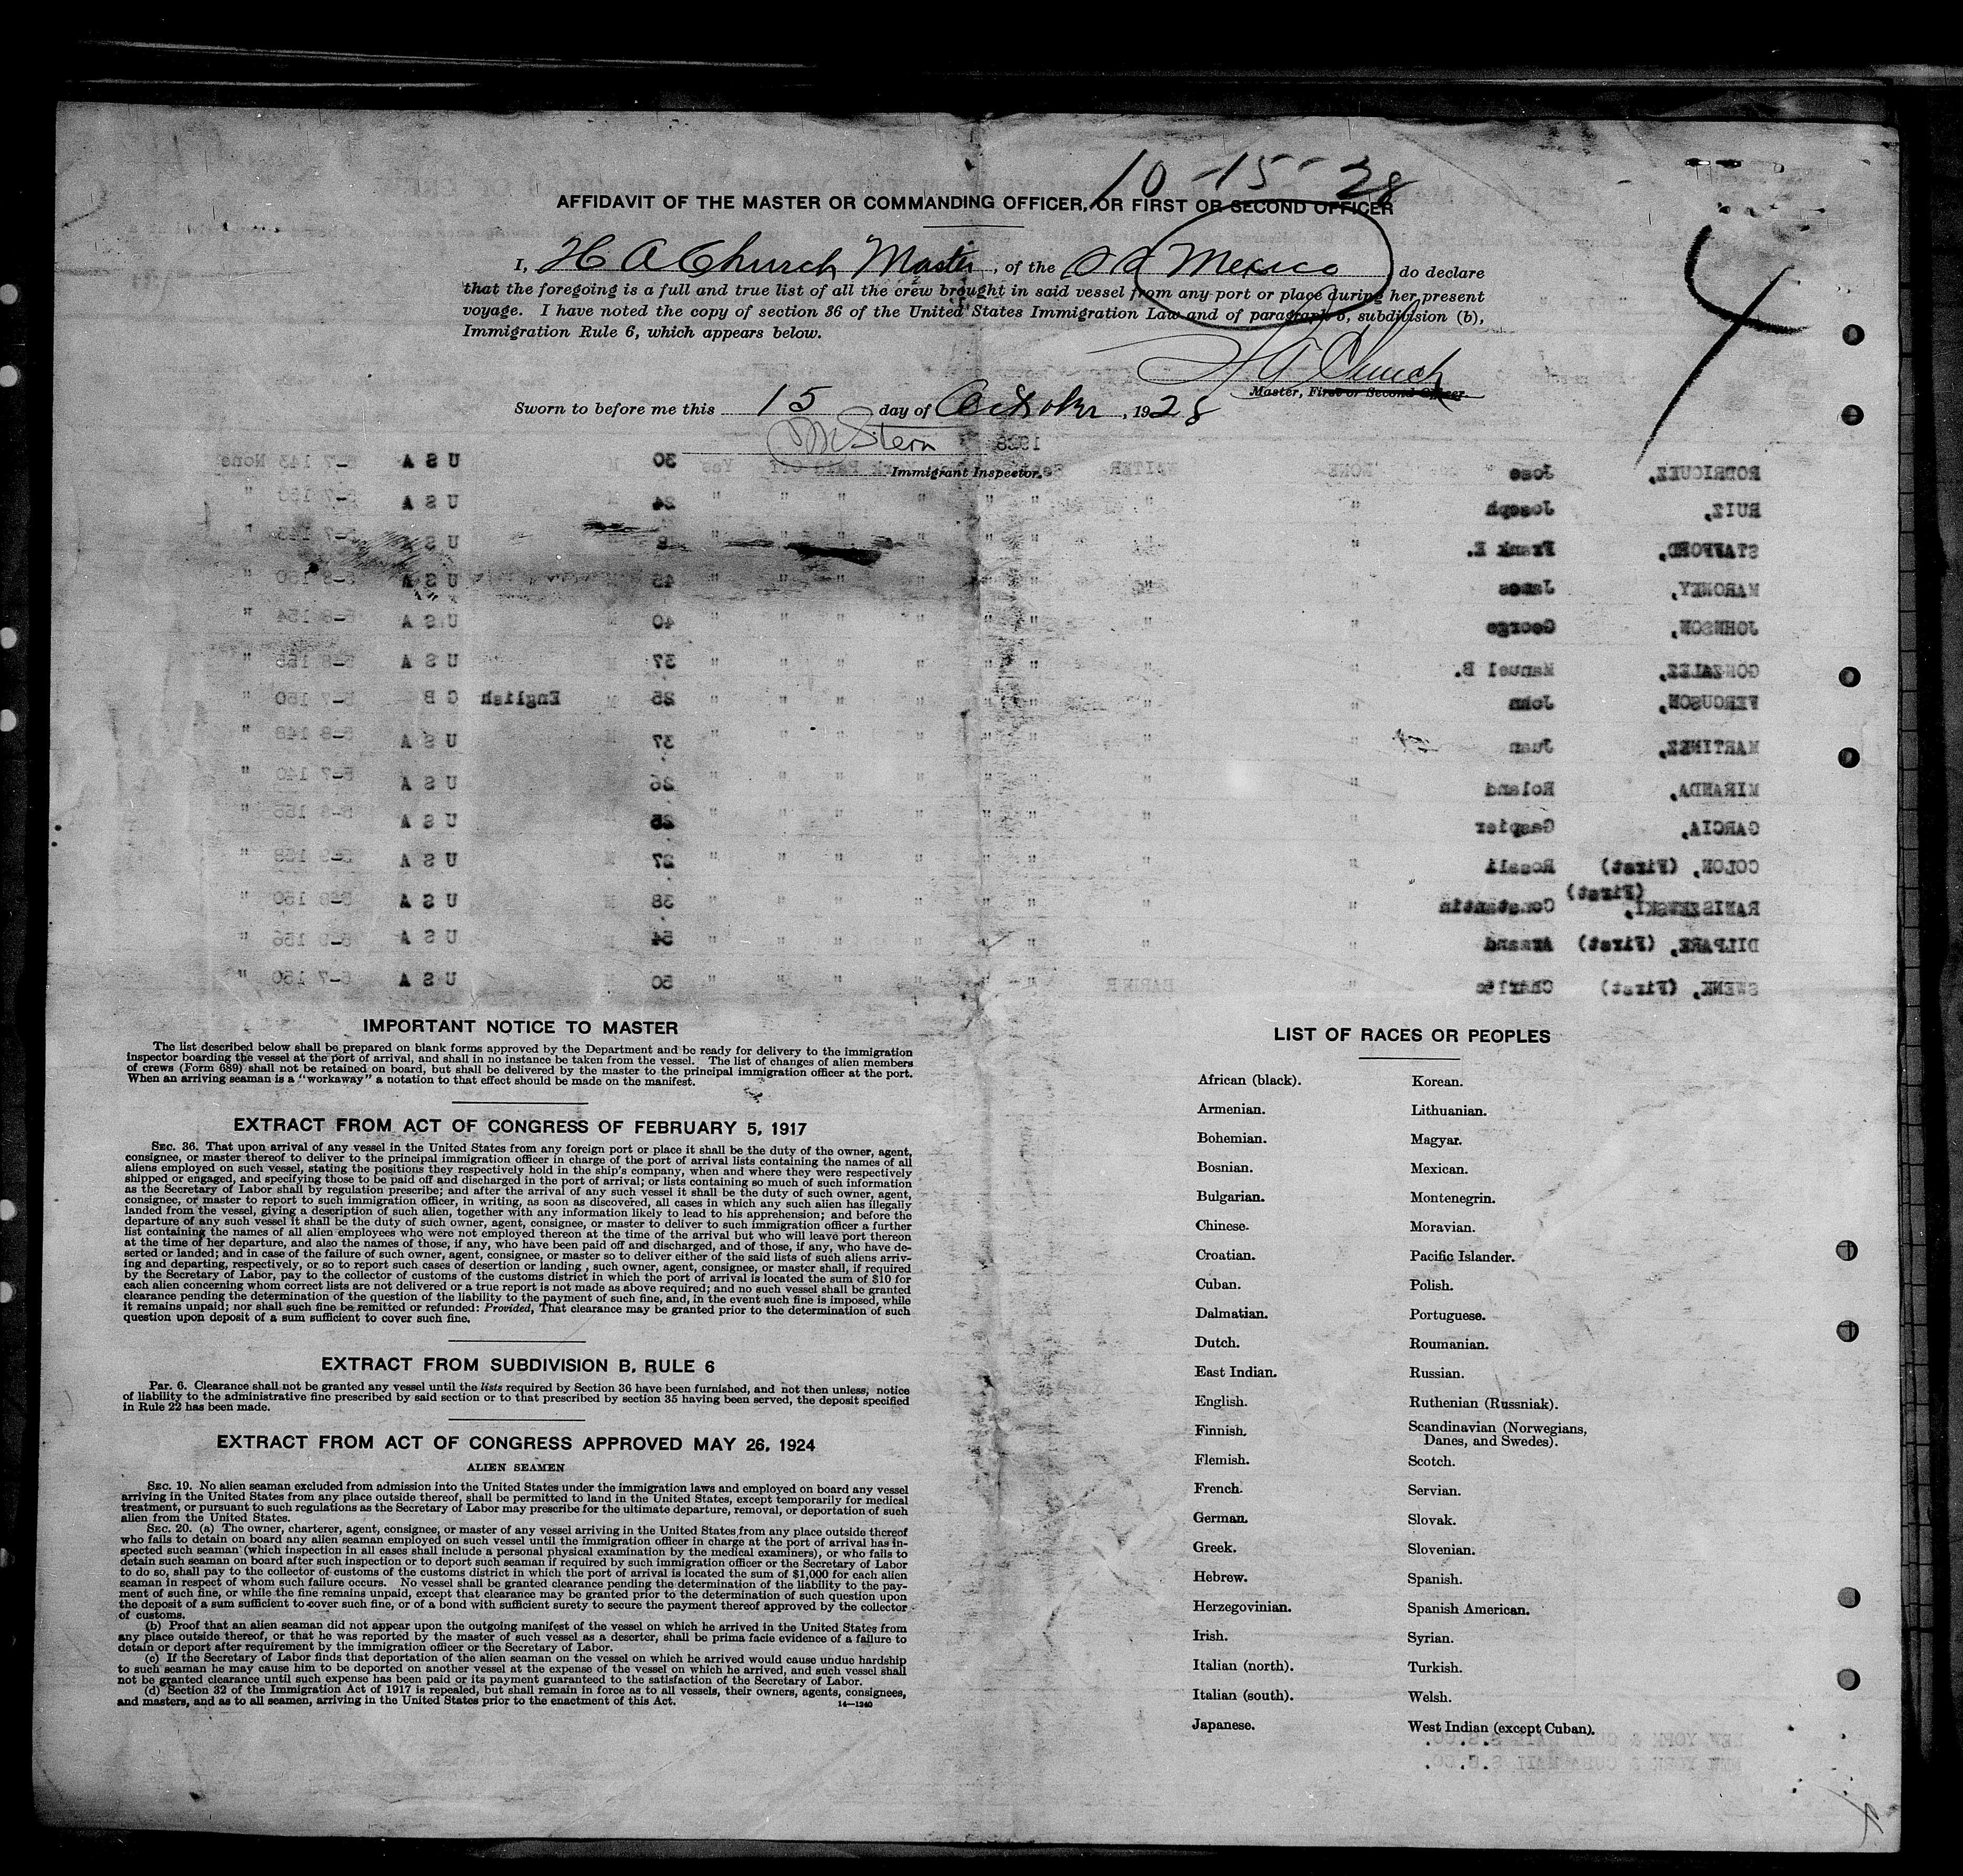 10-15-28
AFFIDAVIT OF THE MASTER OR COMMANDING OFFICER, OR FIRST OR SECOND OFFICER
I, H A Church Master, of the SS Mexico do declare
that the foregoing is a full and true list of all the crew brought in said vessel from any port or place during her present
voyage. I have noted the copy of section 36 of the United States Immigration Law and of paragraph 5, subdivision (b),
Immigration Rule 6, which appears below.
4
H A Church
Master, First or Second Officer
Sworn to before me this 15 day of October, 1928
Stern
Immigrant Inspector.
1928
RODRIGUEZ, Jose NONE WAITER Yes 30 M U S A 5-7 143 None
RUIZ, Joseph " " 24 M U S A 5-7 150 "
STAFFORD, Frank E. " " U S A 5-7 145 "
MAHONEY, James " " 45 M U S A 5-8 150 "
JOHNSON, George " " 40 M U S A 5-8 154 "
GONZALEZ, Manuel B. " " 37 M U S A 5-8 155 "
FERGUSON, John " " 25 M English G B 5-7 150 "
MARTINEZ, Juan " " 37 M U S A 5-8 148 "
MIRANDA, Roland " " 26 M U S A 5-7 140 "
GARCIA, Caspier " " 25 M U S A 5-8 155 "
COLON, (First) Rosali " " 27 M U S A 5-9 158 "
RANISZEWSKI, (First) Constantin " " 38 M U S A 5-8 150 "
DILPARE, (First) Armand " " 54 M U S A 5-9 156 "
SWENK, (First) Charles " BARBER 50 M U S A 5-7 150 "
IMPORTANT NOTICE TO MASTER
The list described below shall be prepared on blank forms approved by the Department and be ready for delivery to the immigration
inspector boarding the vessel at the port of arrival, and shall in no instance be taken from the vessel. The list of changes of alien members
of crews (Form 689) shall not be retained on board, but shall be delivered by the master to the principal immigration officer at the port.
When an arriving seaman is a "workaway" a notation to that effect should be made on the manifest.
EXTRACT FROM ACT OF CONGRESS OF FEBRUARY 5, 1917
SEC. 36. That upon arrival of any vessel in the United States from any foreign port or place it shall be the duty of the owner, agent,
consignee, or master thereof to deliver to the principal immigration officer in charge of the port of arrival lists containing the names of all
aliens employed on such vessel, stating the positions they respectively hold in the ship's company, when and where they were respectively
shipped or engaged, and specifying those to be paid off and discharged in the port of arrival; or lists containing so much of such information
as the Secretary of Labor shall by regulation prescribe; and after the arrival of any such vessel it shall be the duty of such owner, agent,
consignee, or master to report to such immigration officer, in writing, as soon as discovered, all cases in which any such alien has illegally
landed from the vessel, giving a description of such alien, together with any information likely to lead to his apprehension; and before the
departure of any such vessel it shall be the duty of such owner, agent, consignee, or master to deliver to such immigration officer a further
list containing the names of all alien employees who were not employed thereon at the time of the arrival but who will leave port thereon
at the time of her departure, and also the names of those, if any, who have been paid off and discharged, and of those, if any, who have de-
serted or landed; and in case of the failure of such owner, agent, consignee, or master so to deliver either of the said lists of such aliens arriv-
ing and departing, respectively, or so to report such cases of desertion or landing , such owner, agent, consignee, or master shall, if required
by the Secretary of Labor, pay to the collector of customs of the customs district in which the port of arrival is located the sum of $10 for
each alien concerning whom correct lists are not delivered or a true report is not made as above required; and no such vessel shall be granted
clearance pending the determination of the question of the liability to the payment of such fine, and, in the event such fine is imposed, while
it remains unpaid; nor shall such fine be remitted or refunded: Provided, That clearance may be granted prior to the determination of such
question upon deposit of a sum sufficient to cover such fine.
EXTRACT FROM SUBDIVISION B, RULE 6
Par. 6. Clearance shall not be granted any vessel until the lists required by Section 36 have been furnished, and not then unless, notice
of liability to the administrative fine prescribed by said section or to that prescribed by section 35 having been served, the deposit specified
in Rule 22 has been made.
EXTRACT FROM ACT OF CONGRESS APPROVED MAY 26, 1924
ALIEN SEAMEN
SEC. 19. No alien seaman excluded from admission into the United States under the immigration laws and employed on board any vessel
arriving in the United States from any place outside thereof, shall be permitted to land in the United States, except temporarily for medical
treatment, or pursuant to such regulations as the Secretary of Labor may prescribe for the ultimate departure, removal, or deportation of such
alien from the United States.
SEC. 20. (a) The owner, charterer, agent, consignee, or master of any vessel arriving in the United States from any place outside thereof
who fails to detain on board any alien seaman employed on such vessel until the immigration officer in charge at the port of arrival has in-
spected such seaman (which inspection in all cases shall include a personal physical examination by the medical examiners), or who fails to
detain such seaman on board after such inspection or to deport such seaman if required by such immigration officer or the Secretary of Labor
to do so, shall pay to the collector of customs of the customs district in which the port of arrival is located the sum of $1,000 for each alien
seaman in respect of whom such failure occurs. No vessel shall be granted clearance pending the determination of the liability to the pay-
ment of such fine, or while the fine remains unpaid, except that clearance may be granted prior to the determination of such question upon
the deposit of a sum sufficient to cover such fine, or of a bond with sufficient surety to secure the payment thereof approved by the collector
of customs.
(b) Proof that an alien seaman did not appear upon the outgoing manifest of the vessel on which he arrived in the United States from
any place outside thereof, or that he was reported by the master of such vessel as a deserter, shall be prima facie evidence of a failure to
detain or deport after requirement by the immigration officer or the Secretary of Labor.
(c) If the Secretary of Labor finds that deportation of the alien seaman on the vessel on which he arrived would cause undue hardship
to such seaman he may cause him to be deported on another vessel at the expense of the vessel on which he arrived, and such vessel shall
not be granted clearance until such expense has been paid or its payment guaranteed to the satisfaction of the Secretary of Labor.
(d) Section 32 of the Immigration Act of 1917 is repealed, but shall remain in force as to all vessels, their owners, agents, consignees,
and masters, and as to all seamen, arriving in the United States prior to the enactment of this Act.
14—1240
LIST OF RACES OR PEOPLES
African (black). Korean.
Armenian. Lithuanian.
Bohemian. Magyar.
Bosnian. Mexican.
Bulgarian. Montenegrin.
Chinese. Moravian.
Croatian. Pacific Islander.
Cuban. Polish.
Dalmatian. Portuguese.
Dutch. Roumanian.
East Indian. Russian.
English. Ruthenian (Russniak).
Finnish. Scandinavian (Norwegians,
Danes, and Swedes).
Flemish. Scotch.
French. Servian.
German. Slovak.
Greek. Slovenian.
Hebrew. Spanish.
Herzegovinian. Spanish American.
Irish. Syrian.
Italian (north). Turkish.
Italian (south). Welsh.
Japanese. West Indian (except Cuban).
NEW YORK & CUBA MAIL S.S.CO.
NEW YORK & CUBA MAIL S.S.CO.